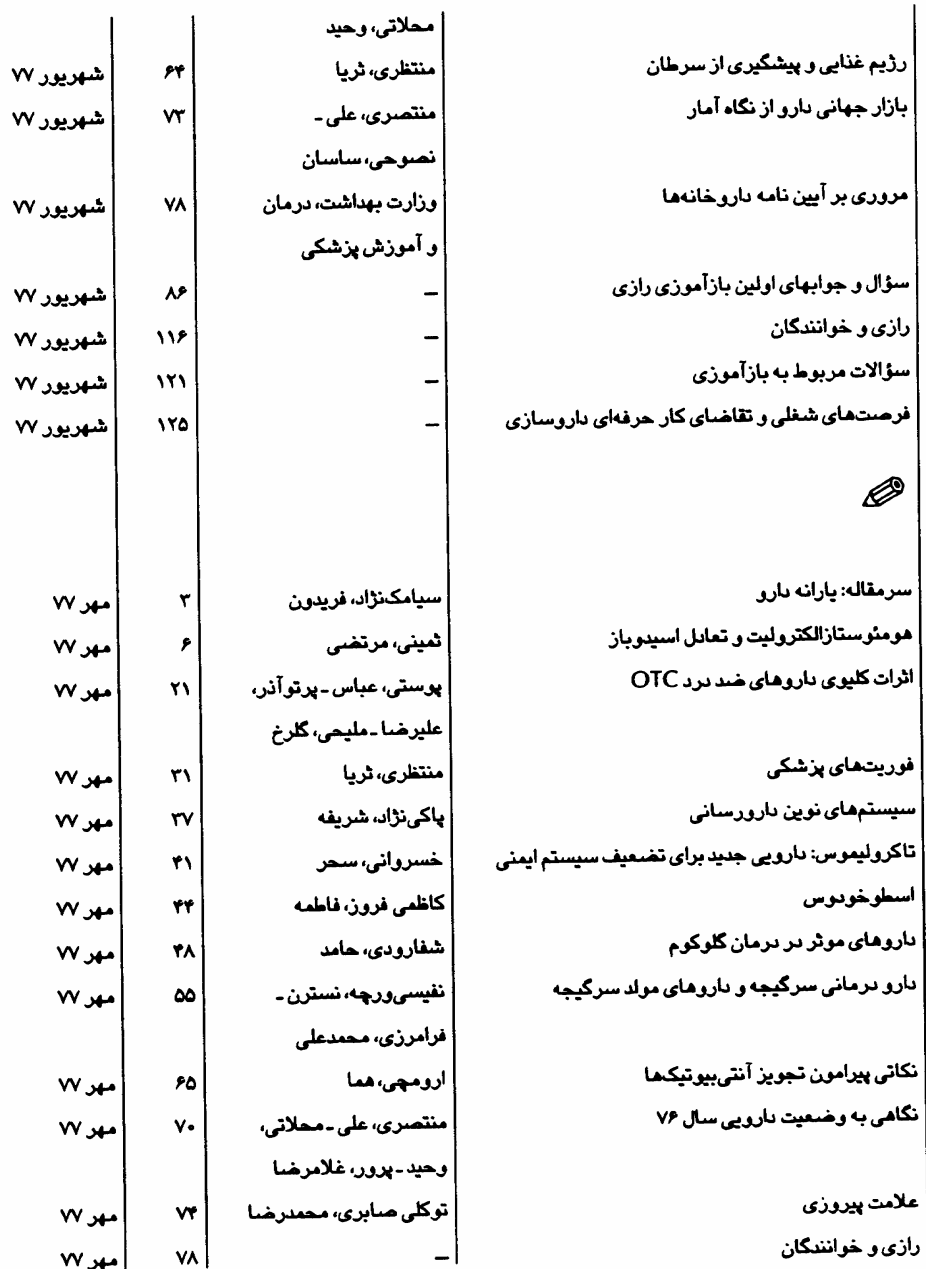 محلاتی، وحید
رژیم غذایی و پیشگیری از سرطان منتظری، ثریا ۶۴ شهریور ۷۷
بازار جهانی دارو از نگاه آمار منتصری، علی - ۷۳ شهریور ۷۷
نصوحی، ساسان
مروری بر آیین نامه داروخانه‌ها وزارت بهداشت، درمان ۷۸ شهریور ۷۷
و آموزش پزشکی
سؤال و جوابهای اولین بازآموزی رازی – ۸۶ شهریور ۷۷
رازی و خوانندگان – ۱۱۶ شهریور ۷۷
سؤالات مربوط به بازآموزی – ۱۲۱ شهریور ۷۷
فرصت‌های شغلی و تقاضای کار حرفه‌ای داروسازی – ۱۲۵ شهریور ۷۷
سرمقاله: یارانه دارو سیامک‌نژاد، فریدون ۳ مهر ۷۷
هومئوستازالکترولیت و تعادل اسیدوباز ثمینی، مرتضی ۶ مهر ۷۷
اثرات کلیوی داروهای ضد درد OTC پوستی، عباس - پرتوآذر، ۲۱ مهر ۷۷
علیرضا - ملیحی، گلرخ
فوریت‌های پزشکی منتظری، ثریا ۳۱ مهر ۷۷
سیستم‌های نوین دارورسانی پاکی‌نژاد، شریفه ۳۷ مهر ۷۷
تاکرولیموس: دارویی جدید برای تضعیف سیستم ایمنی خسروانی، سحر ۴۱ مهر ۷۷
اسطوخودوس کاظمی فروز، فاطمه ۴۴ مهر ۷۷
داروهای موثر در درمان گلوکوم شفارودی، حامد ۴۸ مهر ۷۷
دارو درمانی سرگیجه و داروهای مولد سرگیجه نفیسی‌ورچه، نسترن - ۵۵ مهر ۷۷
فرامرزی، محمدعلی
نکاتی پیرامون تجویز آنتی‌بیوتیک‌ها ارومچی، هما ۶۵ مهر ۷۷
نگاهی به وضعیت دارویی سال ۷۶ منتصری، علی - محلاتی، ۷۰ مهر ۷۷
وحید - پرور، غلامرضا
علامت پیروزی توکلی صابری، محمدرضا ۷۴ مهر ۷۷
رازی و خوانندگان – ۷۸ مهر ۷۷